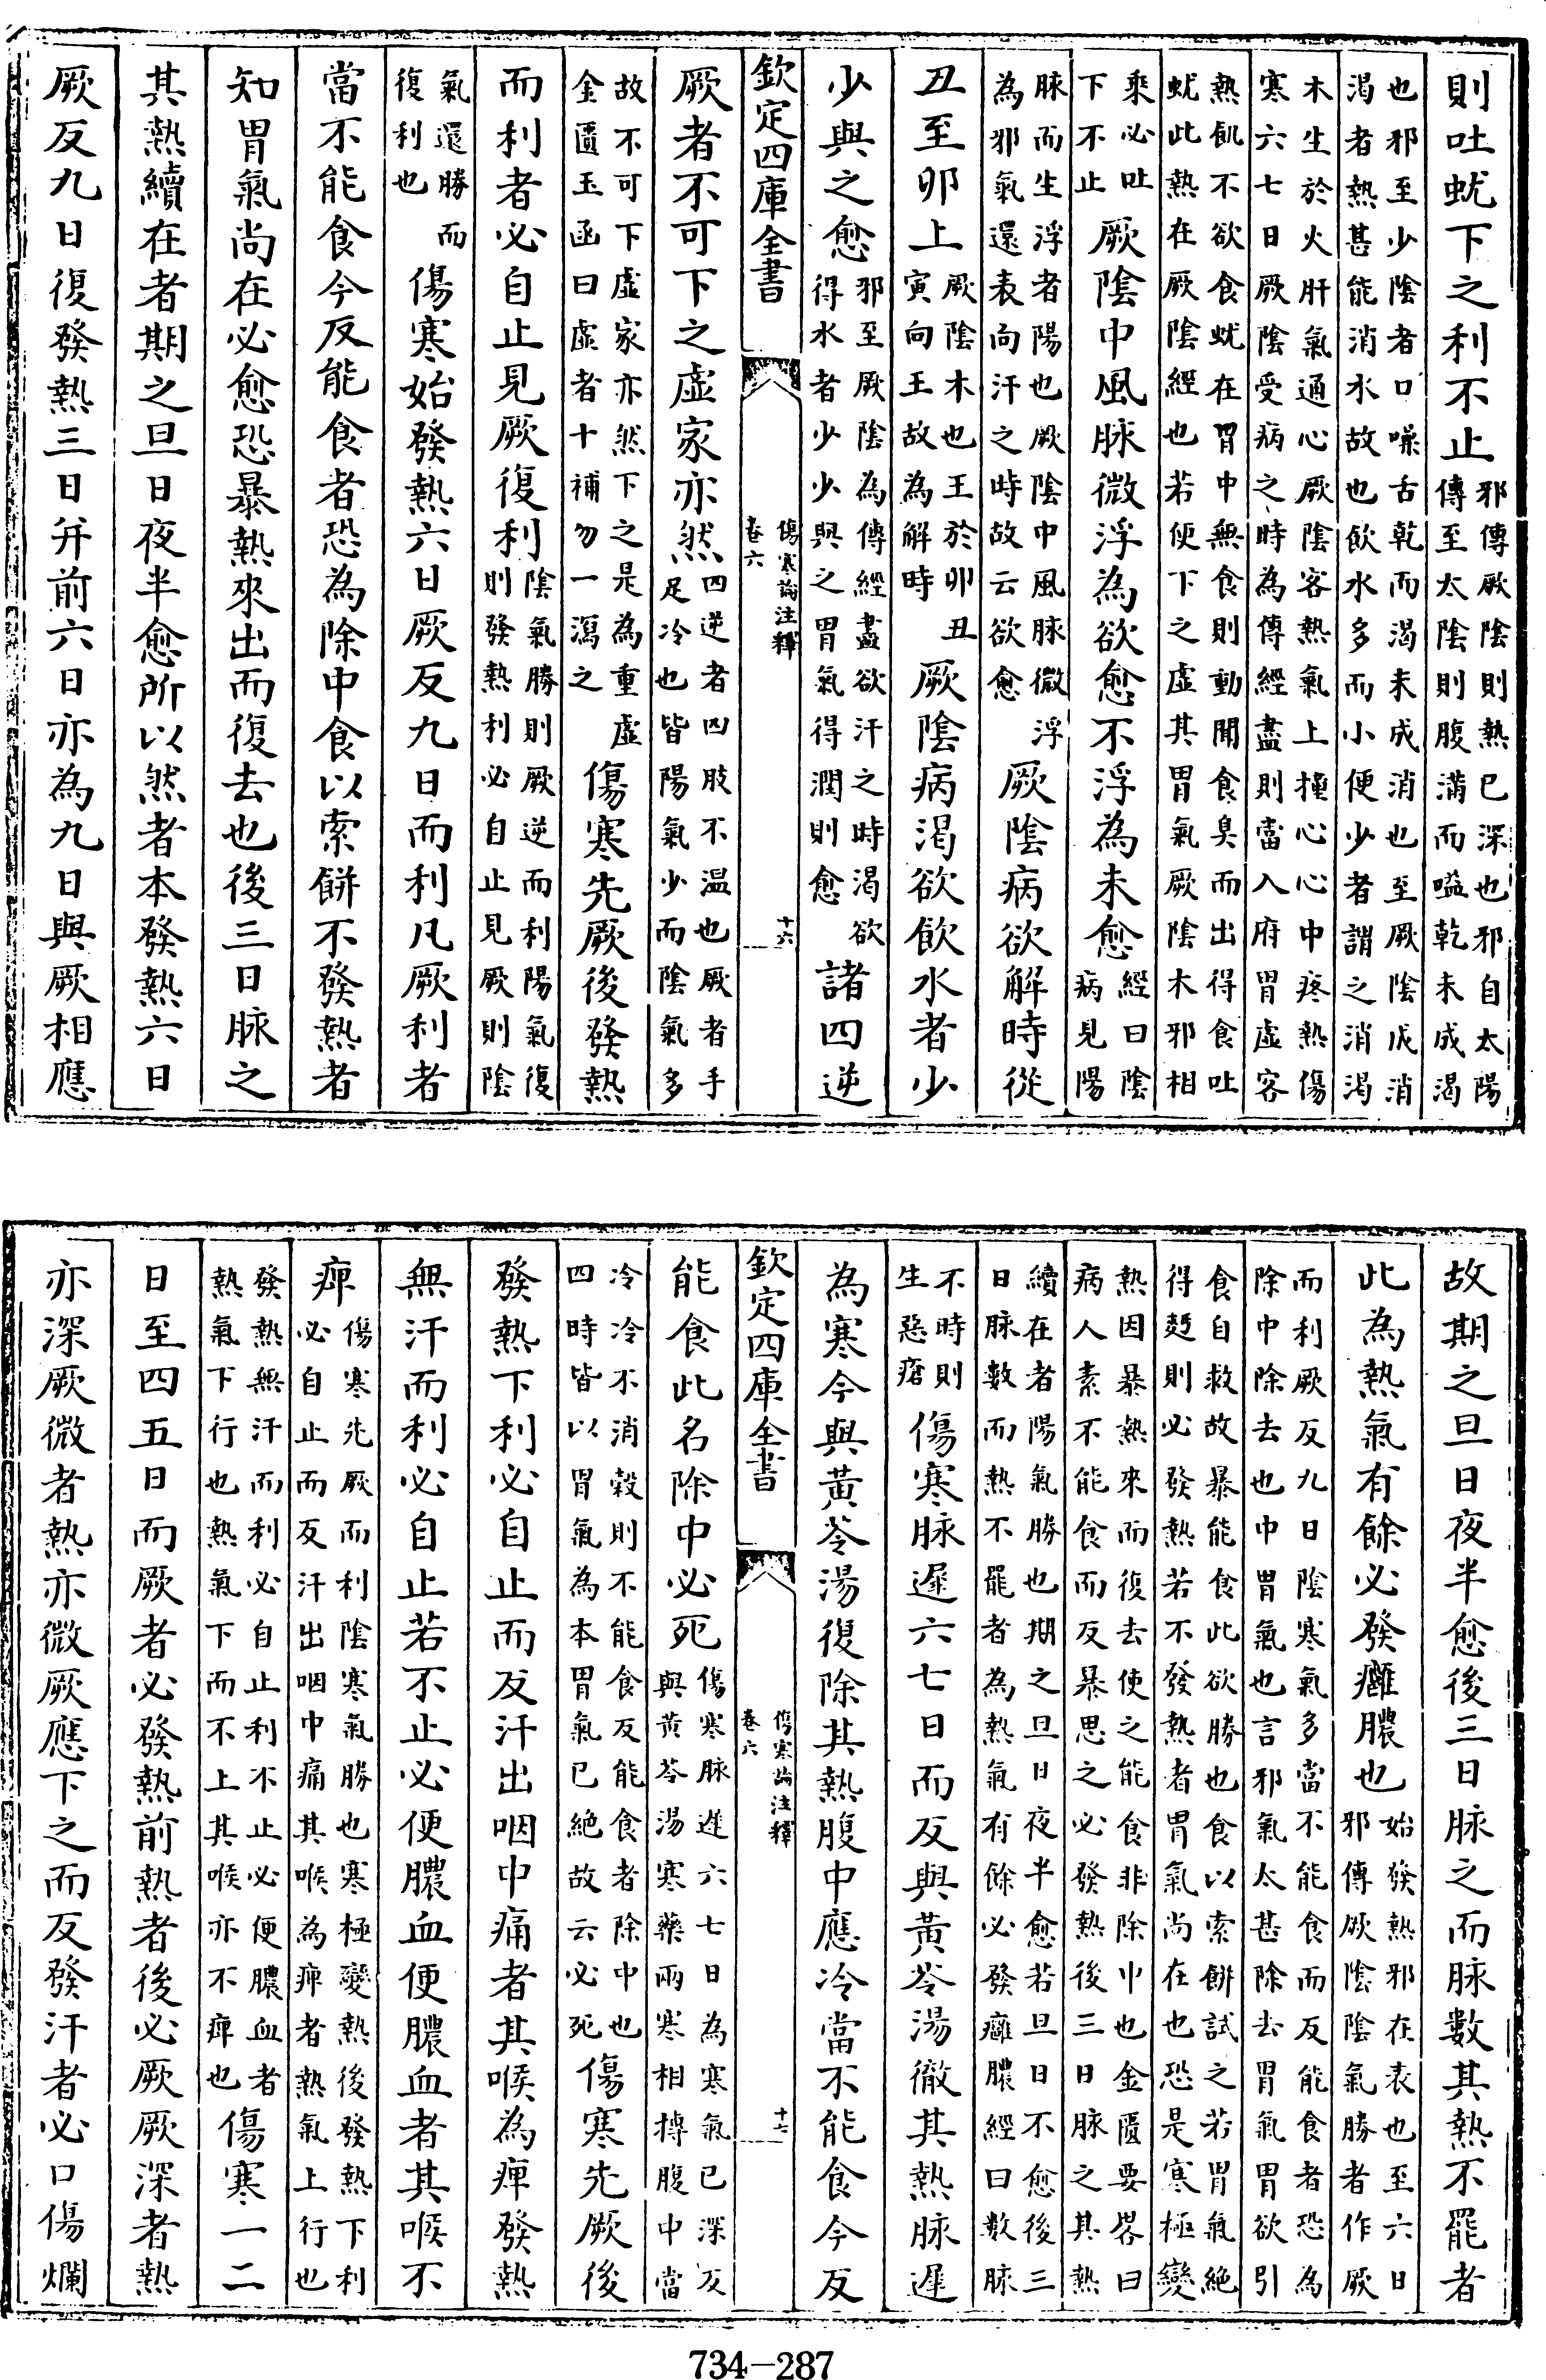 則吐蚘下之利不止邪傳厥陰則熱已深也邪自太陽傳至太陰則腹滿而嗌乾未成渴
也邪至少陰者口噪舌乾而渴未成消也至厥陰成消渴者熱甚能消水故也飲水多而小便少者謂之消渴
木生於火肝氣通心厥陰客熱氣上撞心心中疼熱傷寒六七日厥陰受病之時為傳經盡則當入府胃虛客
熱飢不欲食蚘在胃中無食則動聞食臭而出得食吐蚘此熱在厥陰經也若便下之虛其胃氣厥陰木邪相
乘必吐下不止厥陰中風脉微浮為欲愈不浮為未愈經曰陰病見陽
脉而生浮者陽也厥陰中風脉微浮為邪氣還表向汗之時故云欲愈厥陰病欲解時從
丑至卯上厥陰木也王於卯丑寅向王故為解時厥陰病渴欲飲水者少
少與之愈邪至厥陰為傳經盡欲汗之時渴欲得水者少少與之胃氣得潤則愈諸四逆
欽定四庫全書 傷寒論注釋 卷六 十六
厥者不可下之虛家亦然四逆者四肢不温也厥者手足冷也皆陽氣少而陰氣多
故不可下虛家亦然下之是為重虛金匱玉函曰虛者十補勿一瀉之傷寒先厥後發熱
而利者必自止見厥復利陰氣勝則厥逆而利陽氣復則發熱利必自止見厥則陰
氣還勝而復利也傷寒始發熱六日厥反九日而利凡厥利者
當不能食今反能食者恐為除中食以索餅不發熱者
知胃氣尚在必愈恐暴熱來出而復去也後三日脉之
其熱續在者期之旦日夜半愈所以然者本發熱六日
厥反九日復發熱三日并前六日亦為九日與厥相應
故期之旦日夜半愈後三日脉之而脉數其熱不罷者
此為熱氣有餘必發癰膿也始發熱邪在表也至六日邪傳厥陰陰氣勝者作厥
而利厥反九日陰寒氣多當不能食而反能食者恐為除中除去也中胃氣也言邪氣太甚除去胃氣胃欲引
食自救故暴能食此欲勝也食以索餅試之若胃氣絶得麪則必發熱若不發熱者胃氣尚在也恐是寒極變
熱因暴熱來而復去使之能食非除中也金匱要畧曰病人素不能食而反暴思之必發熱後三日脉之其熱
續在者陽氣勝也期之旦日夜半愈若旦日不愈後三日脉數而熱不罷者為熱氣有餘必發癰膿經曰數脉
不時則生惡瘡傷寒脉遲六七日而反與黃芩湯徹其熱脉遲
為寒今與黃芩湯復除其熱腹中應冷當不能食今反
欽定四庫全書 傷寒論注釋 卷六 十七
能食此名除中必死傷寒脉遲六七日為寒氣已深反與黃芩湯寒藥兩寒相摶腹中當
冷冷不消穀則不能食反能食者除中也四時皆以胃氣為本胃氣已絶故云必死傷寒先厥後
發熱下利必自止而反汗出咽中痛者其喉為痺發熱
無汗而利必自止若不止必便膿血便膿血者其喉不
痺傷寒先厥而利陰寒氣勝也寒極變熱後發熱下利必自止而反汗出咽中痛其喉為痺者熱氣上行也
發熱無汗而利必自止利不止必便膿血者熱氣下行也熱氣下而不上其喉亦不痺也傷寒一二
日至四五日而厥者必發熱前熱者後必厥厥深者熱
亦深厥微者熱亦微厥應下之而反發汗者必口傷爛
734-287